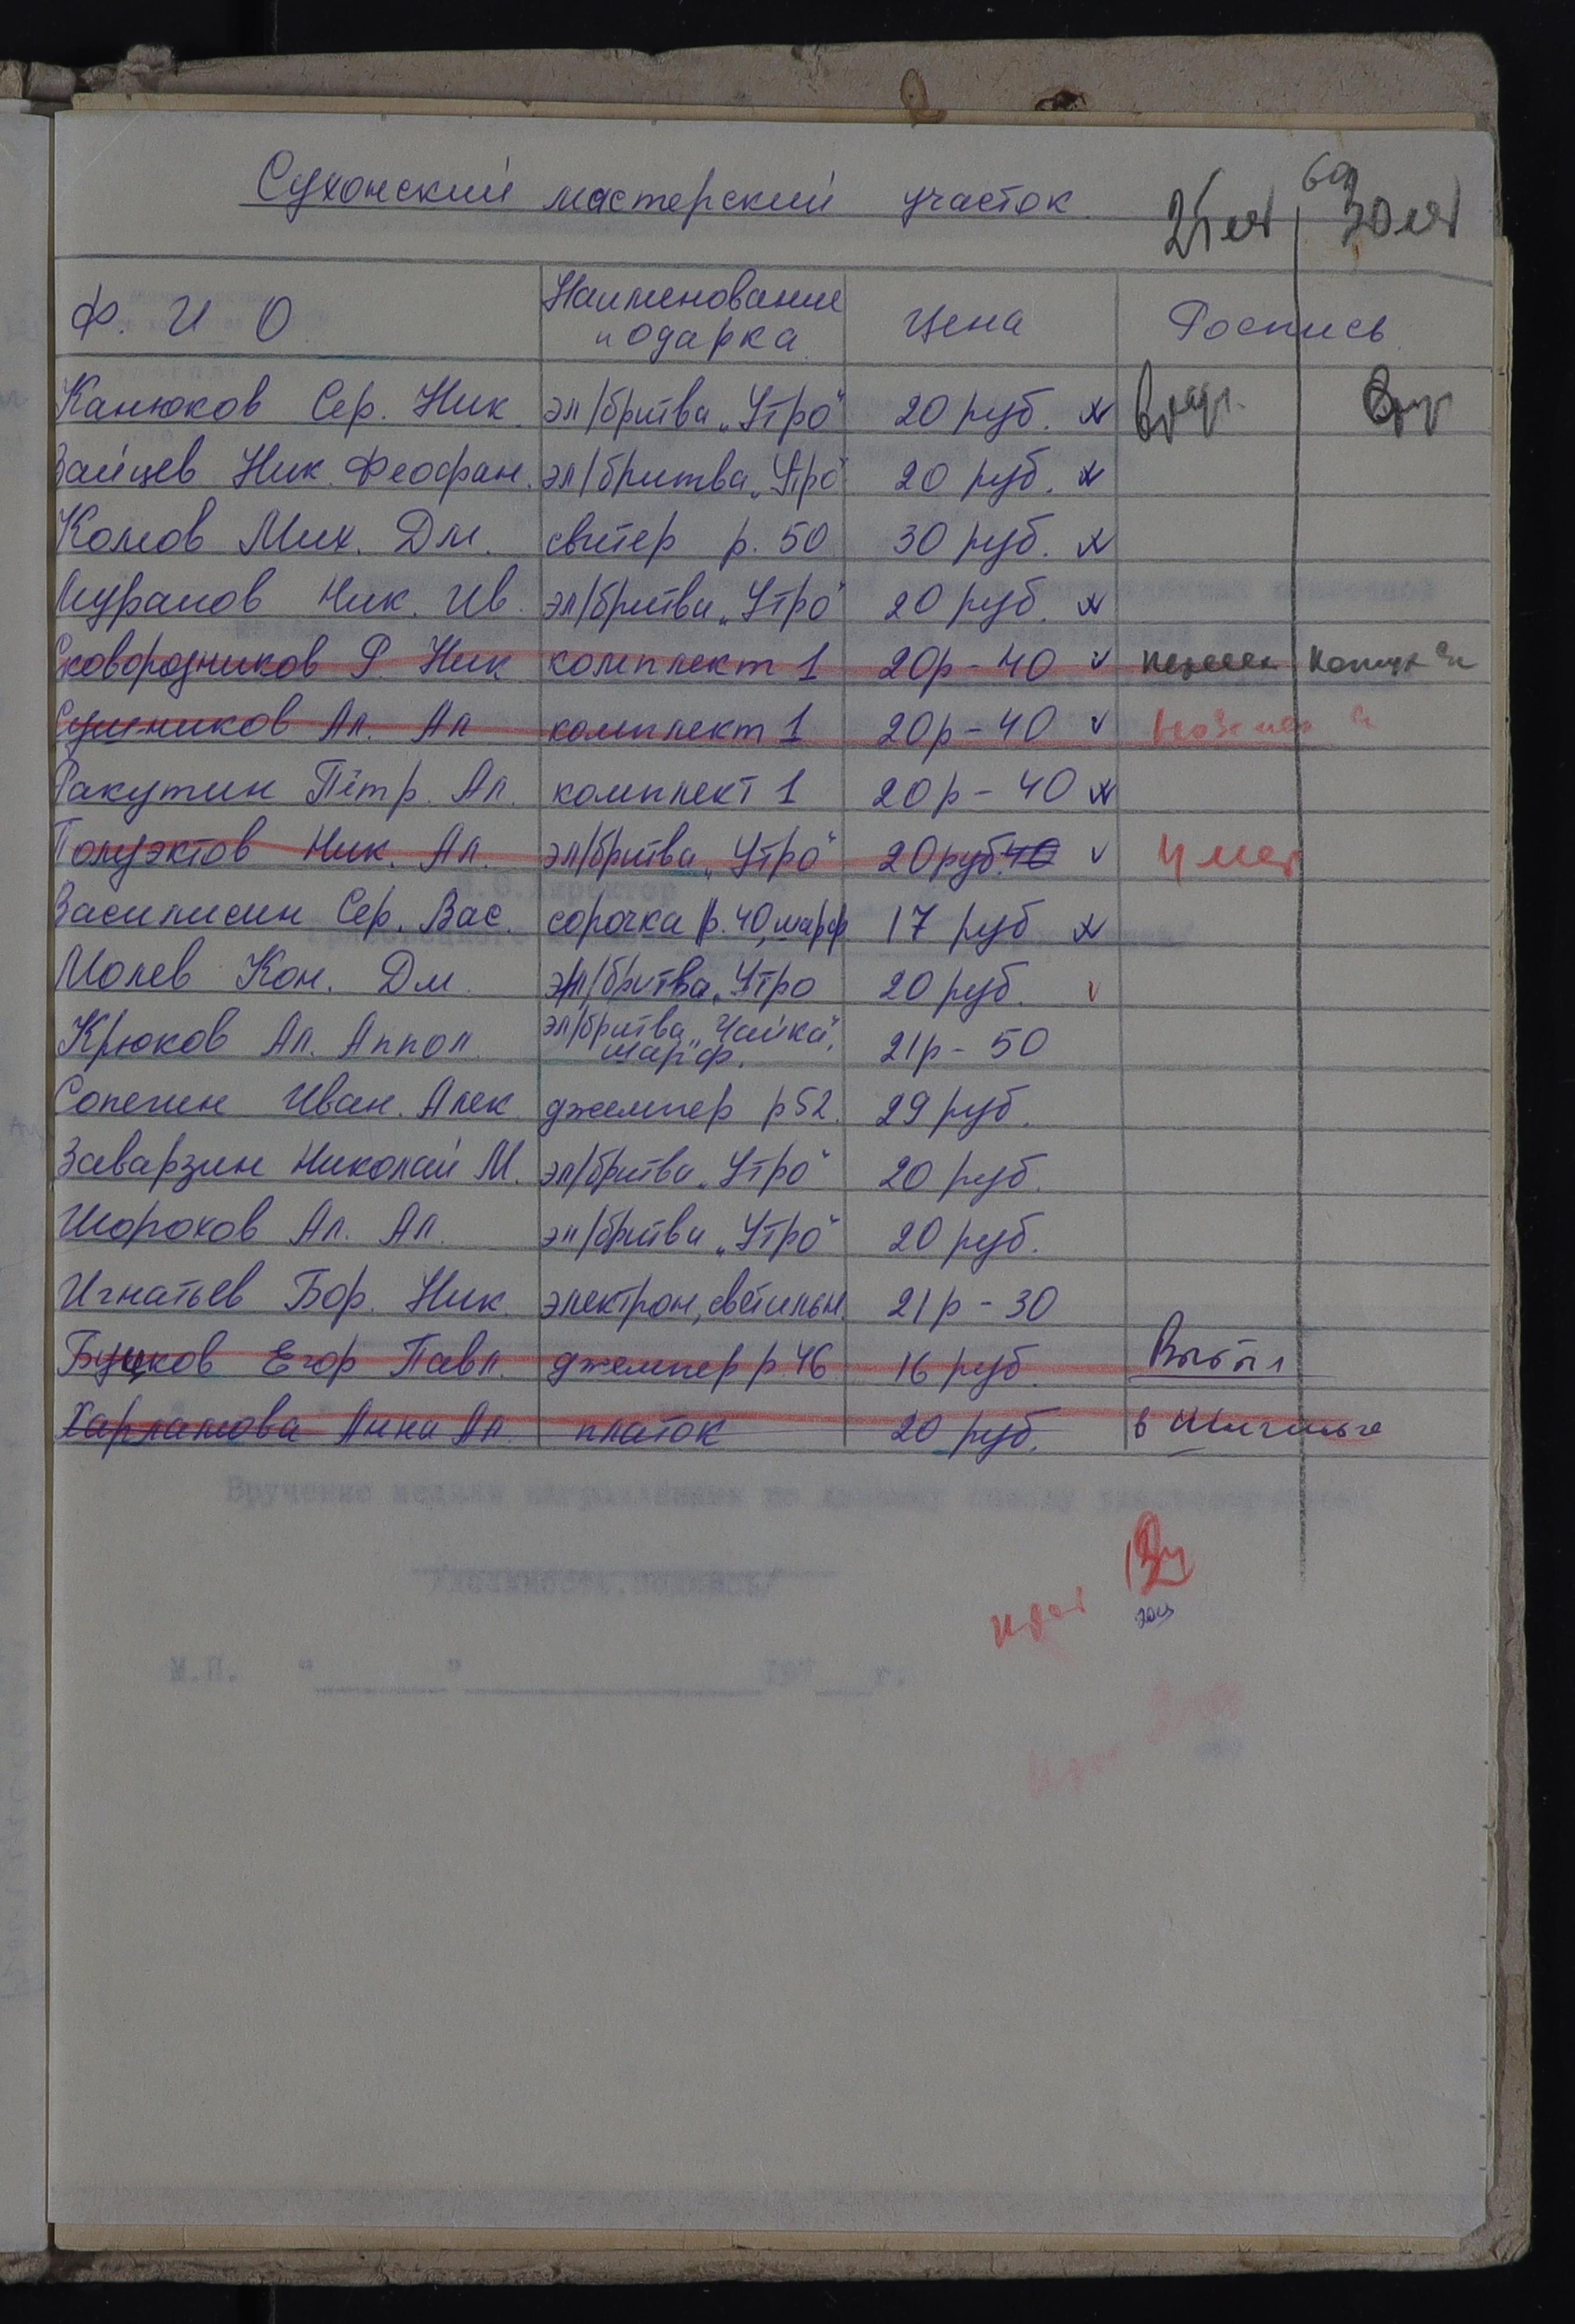 Сухонский мастерский участок
25 лет 30 лет
Ф. И О Наименование подарка Цена Роспись
Канюков Сер. Ник. эл/бритва „Утро“ 20 руб.
Зайцев Ник. Феофан. эл/бритва „Утро“ 20 руб.
Комов Мих. Дм. свитер р. 50 30 руб.
Мурашов Ник. Ив. эл/бритва „Утро“ 20 руб.
Сковородников Р. Ник комплект 1 20р - 40
Сушников Ал. Ал комплект 1 20р - 40
Ракутин Пётр. Ал. комплект 1 20р - 40
Полуэктов Ник. Ал. эл/бритва „Утро“ 20 руб. 40
Василисин Сер. Вас. сорочка р. 40, шарф 17 руб
Молев Кон. Дм. эл/бритва „Утро 20 руб.
Крюков Ал. Аппол. эл/бритва „Чайка“, шарф. 21р - 50
Сопегин Иван. Алек. джемпер р 52. 29 руб.
Заварзин Николай М. эл/бритва „Утро“ 20 руб.
Шорохов Ал. Ал. эл/бритва „Утро“ 20 руб.
Игнатьев Бор. Ник. электрон, светильн. 21р - 30
Буцков Егор Павл. джемпер р. 46 16 руб. Выбыл
Харламова Анна Ал. платок 20 руб. в
М.П. " " 197 г.